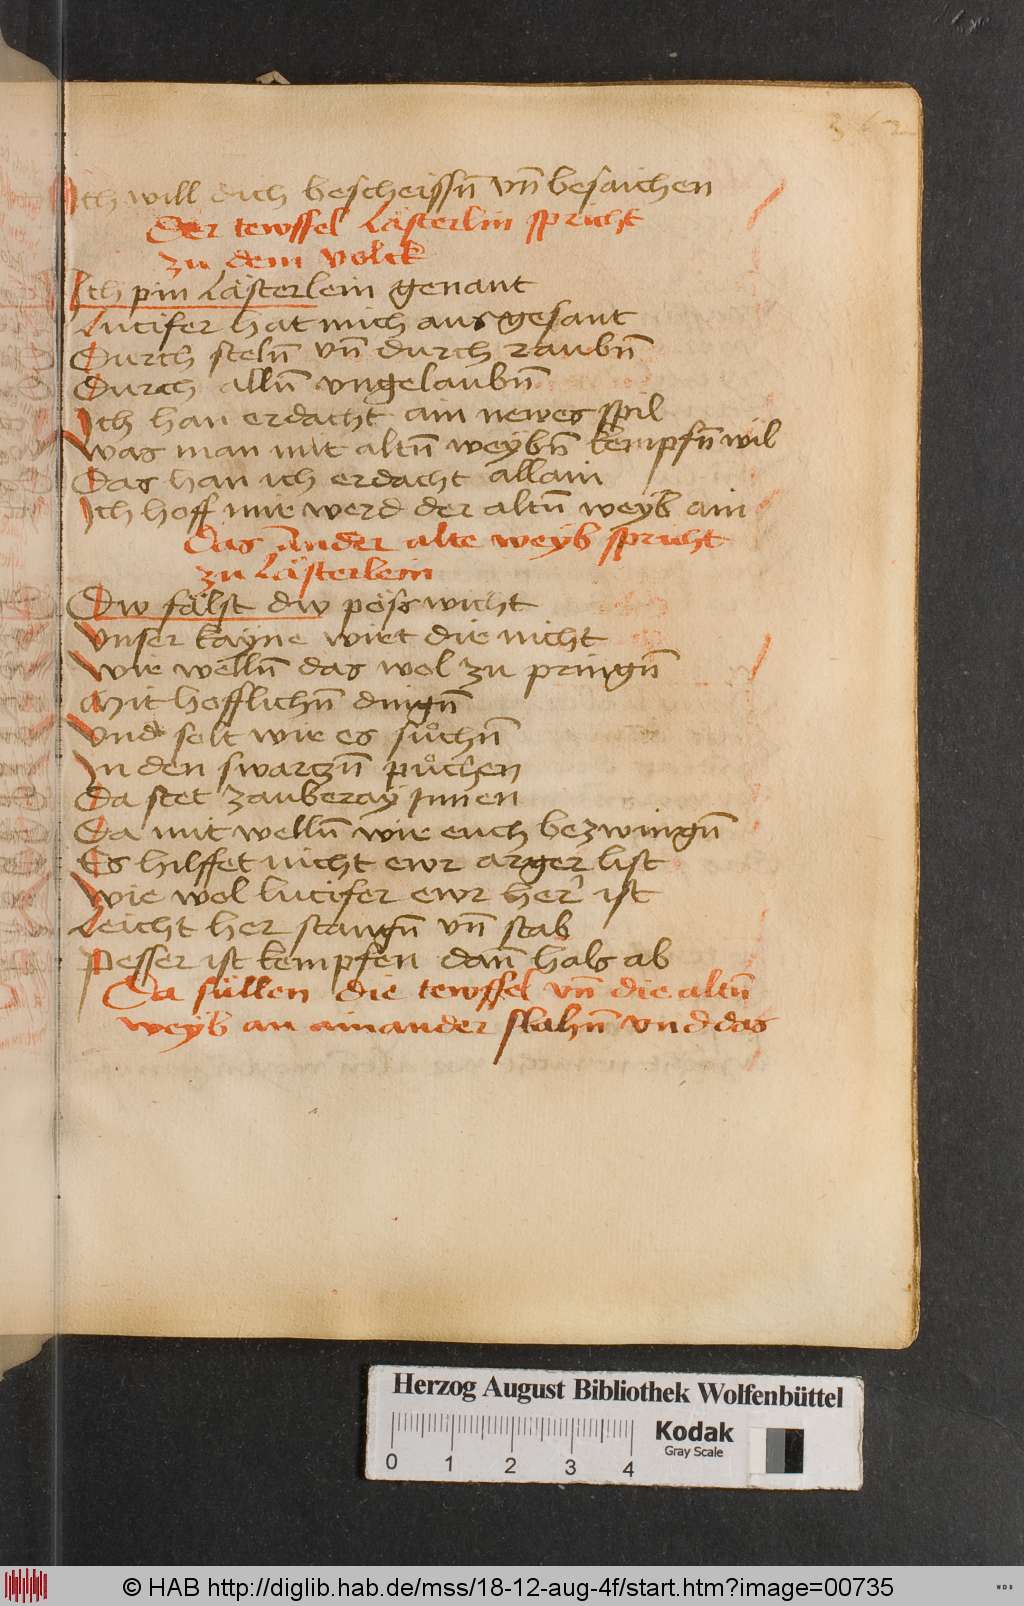 362
Ich will dich bescheissn̄ vn̄ besaichen
Der tewffel Lästerlin spricht
zu dem volck
Ich pin Lästerlein genant
Lucifer hat mich aus gesant
Durch steln̄ vn̄ durch raubn̄
Durch alln̄ vngelaubn̄
Ich han erdacht ain newes spil
Was man mit altn̄ weybn̄ kempfn̄ wil
Das han ich erdacht allain
Ich hoff mir werd der altn̄ weyb ain
Das annder alte weyb spricht
zu Lästerlein
Dw fälst dw pöss wicht
Vnser kayne wirt die nicht
Wir welln̄ das wol zu pringn̄
Mit hofflichn̄ dingn̄
Vnd solt wir es sůchn̄
In den swarczn̄ půchen
Da stet zauberay Innen
Da mit welln̄ wir euch bezwingn̄
Es hilffet nicht ewr arger list
Wie wol lucifer ewr her ist
Leicht her stangn̄ vn̄ stab
Pesser ist kempfen dan̄ hals ab
Da süllen die tewffel vn̄ die altn̄
weyb an ainander slahn̄ vnd das
Herzog August Bibliothek Wolfenbüttel
Kodak
Gray Scale
0 1 2 3 4
© HAB http://diglib.hab.de/mss/18-12-aug-4f/start.htm?image=00735